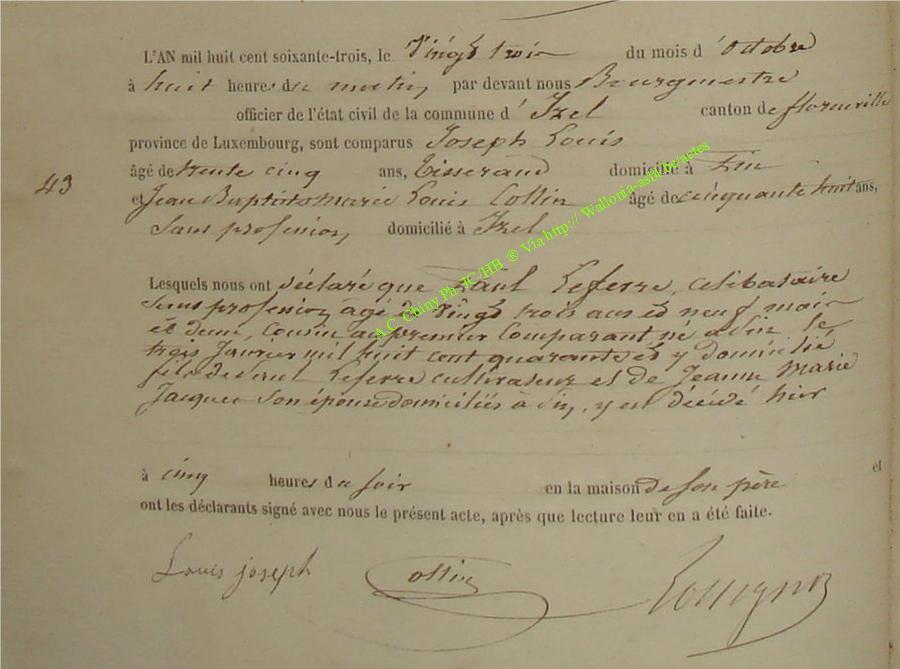 L'AN mil huit cent soixante-trois, le Vingt trois du mois d'Octobre
à huit heures du matin, par devant nous Bourgmestre
officier de l'état civil de la commune d'Izel canton de florenville
province de Luxembourg, sont comparus Joseph Louis
âgé de trente cinq ans, Tisserand domicilié à Pin
43
et Jean Baptiste Marie Louis Collin âgé de cinquante huit ans,
Sans profession, domicilié à Izel
A.C. Chiny Ph JC/HB ® Via http:// Wallonia-asbl.be/actes
Lesquels nous ont déclaré que Paul Leferre, célibataire
Sans profession, âgé de Vingt trois ans et neuf mois
et demi, Cousin au premier Comparant né à Pin le
trois Janvier mil huit cent quarante et y domicilié
fils de Paul Leferre cultivateur et de Jeanne Marie
Jacques Son épouse domiciliés à Pin, y est décédé hier
à cinq heures du soir en la maison de son père et
ont les déclarants signé avec nous le présent acte, après que lecture leur en a été faite.
Louis joseph Collin Rossignon